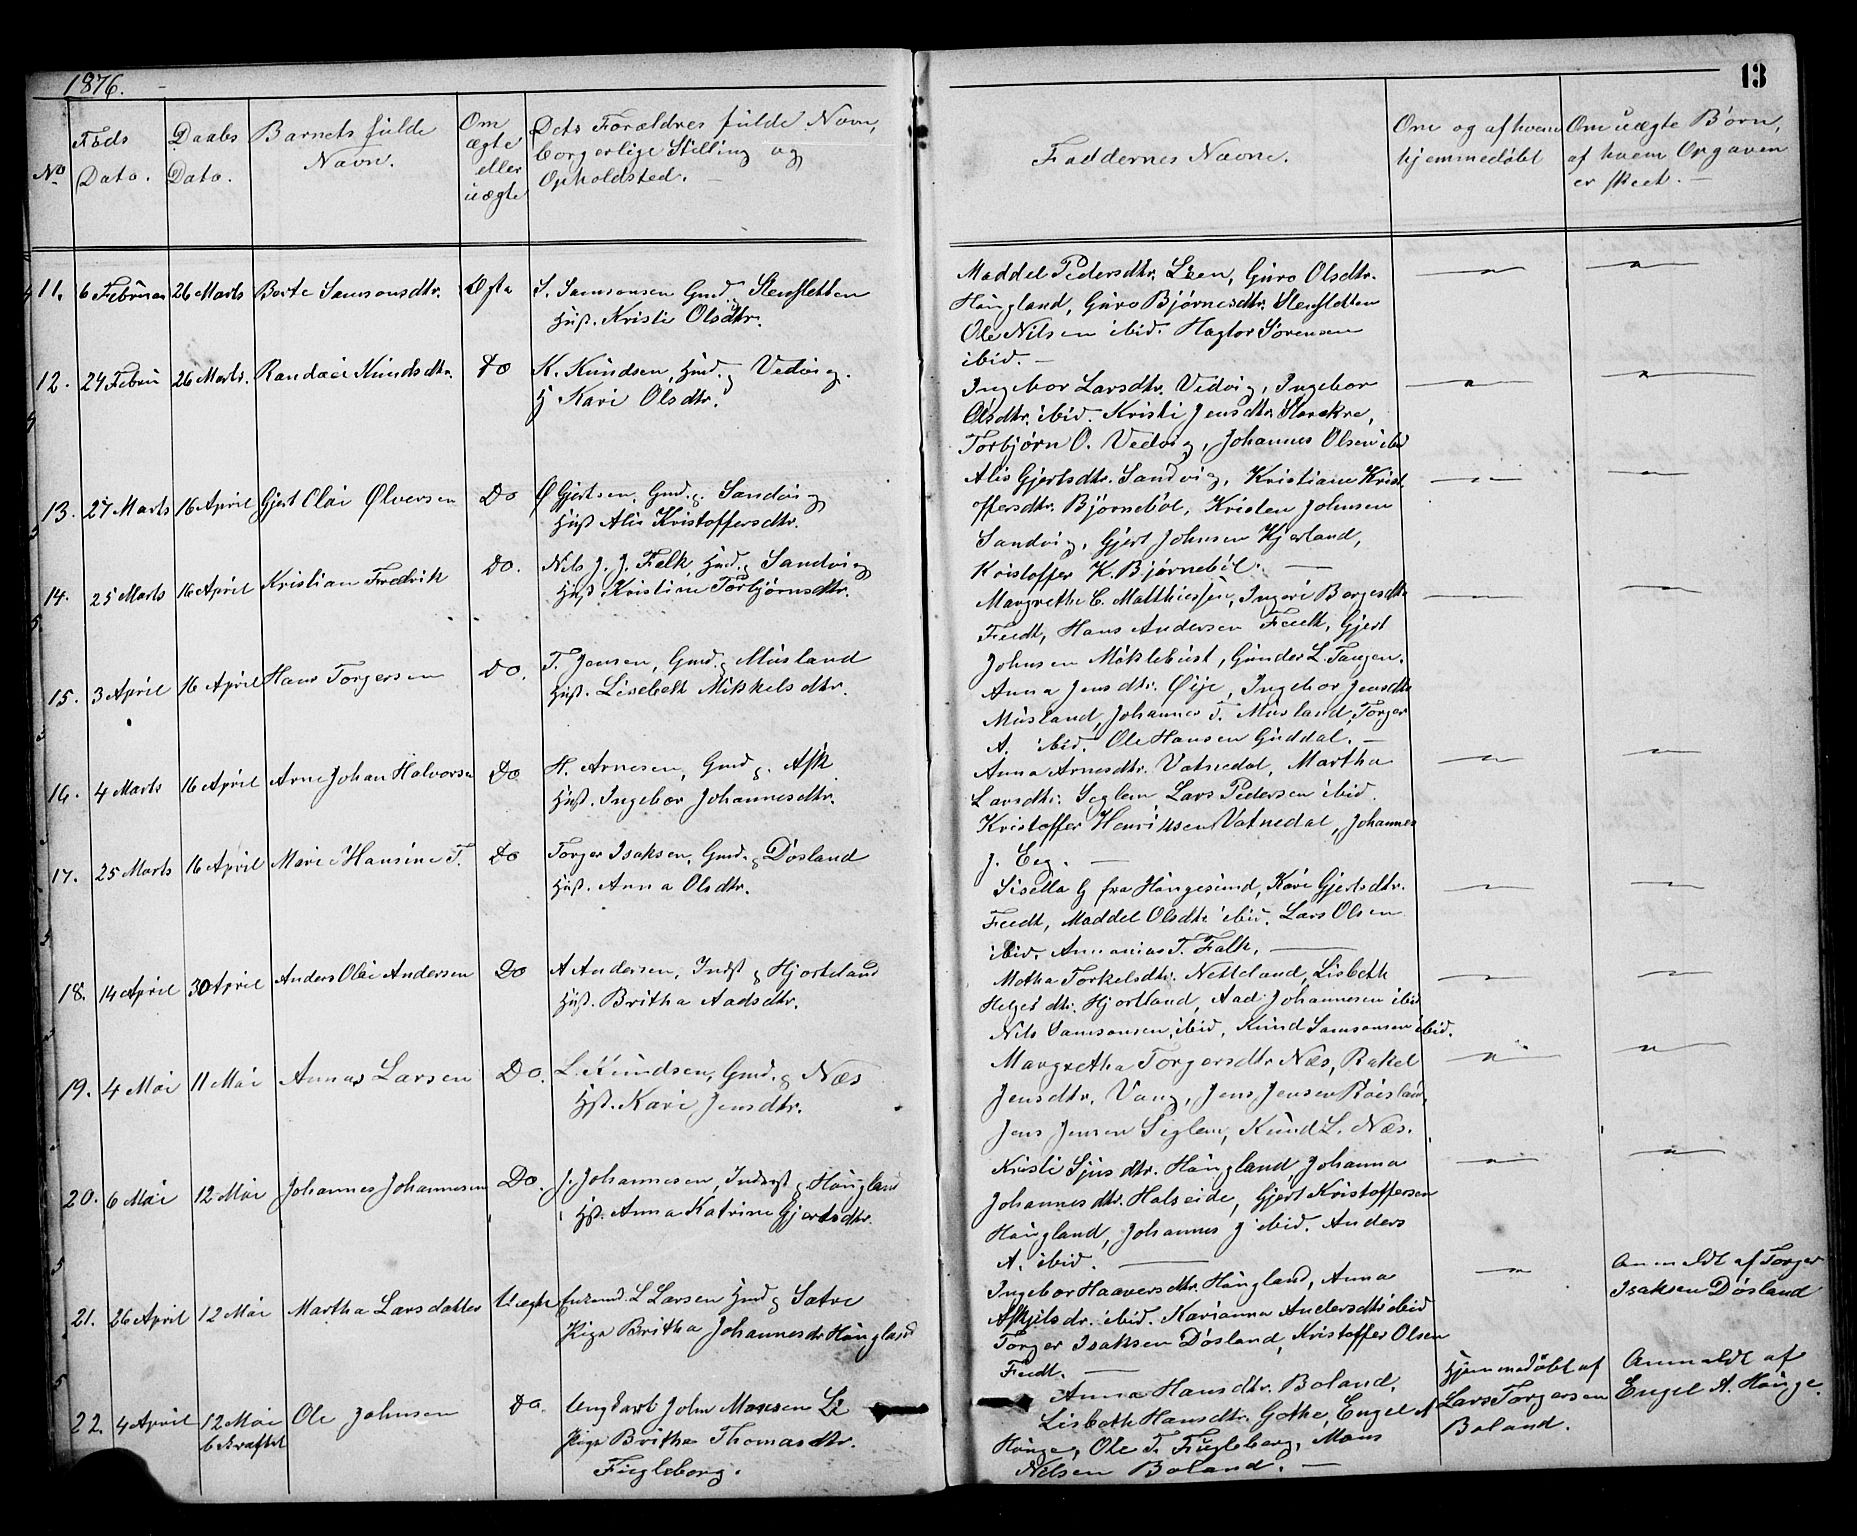 1876.
13
No
Föds Dato.
Daabs Dato.
Barnets fulde Navn.
Om ægte eller uægte
Dets Forældres fulde Navn, borgerlige Stilling og Opholdsted.
Faddernes Navne.
Om og af hvem hjemmedöbt
Om uægte Börn, af hvem Opgaven er skeet.
11. 6 Februar 26 Marts Berte Samsonsdtr. Ægte S. Samsonsen Gmd. Stensletten
Hust. Kristi Olsdtr.
Maddel Pedersdtr. Leen, Guro Olsdtr.
Haugland, Guro Bjørnesdtr. Stensletten
Ole Nilsen ibid. Hagtor Sørensen
ibid.
12. 24 Febru 26 Marts. Randaei Knudsdtr. Do K. Knudsen, Hmd. Vedvig.
H Kari Olsdtr.
Ingebor Larsdtr. Vedvig, Ingebor
Olsdtr. ibid. Kristi Jensdtr. Storekre,
Torbjørn O. Vedvig, Johannes Olsen ibd
13. 27 Marts 16 April Gjert Olai Ølversen Do Ø Gjertsen, Gmd. Sandvig
Hust Alis Kristoffersdtr.
Alis Gjertsdtr. Sandvig, Kristiane Krist
offersdtr. Bjørneböl, Kristen Johnsen
Sandvig, Gjert Johnsen Hjerland,
Kristoffer K. Bjørneböl.
14. 25 Marts 16 April Kristian Fredrik Do. Nils J. J. Falk, Hmd. Sandvig
Hust Kristine Torbjørnsdtr.
Margrethe C. Matthiessen, Ingeri Borgesdtr
Feedt, Hans Andersen Feedt, Gjert
Johnsen Möklebust, Gunder L. Tangen.
15. 3 April 16 April Hans Torgersen Do. T. Jensen, Gmd. Musland
Hust. Lisebeth Mikkelsdtr.
Anna Jensdtr. Øije, Ingebor Jensdtr
Musland, Johannes T. Musland, Torger
A. ibid. Ole Hansen Guddal.
16. 4 Marts 16 April Arne Johan Halvorsen Do H. Arnesen, Gmd. Ask
Hust. Ingebor Johannesdtr.
Anna Arnesdtr. Vatnedal, Martha
Larsdtr. Seglem, Lars Pedersen ibid.
Kristoffer Henriksen Vatnedal, Johannes
J. Eeg.
17. 25 Marts 16 April Marie Hansine T. Do Torger Isaksen, Gmd. Døsland
Hust. Anna Olsdtr.
Sisella G fra Haugesund, Kari Gjertsdtr.
Feedt, Maddel Olsdtr ibid. Lars Olsen
ibid. Annanias T. Falk.
18. 14 April 30 April Anders Olai Andersen Do A Andersen, Indst Hjorteland
Hust. Britha Aadsdtr.
Motha Torkelsdtr. Netteland, Lisbeth
Helgesdtr. Hjortland, Aad Johannesen ibid
Nils Samsonsen, ibid, Knud Samsonsen ibid.
19. 4 Mai 11 Mai Annas Larsen Do. L. Knudsen, Gmd. Næs
Hst. Kari Jensdtr.
Margretha Torgersdtr Næs, Rakel
Jensdtr. Vang, Jens Jensen Röisland,
Jens Jensen Seglem, Knud L. Næs.
20. 6 Mai 12 Mai Johannes Johannesen Do. J. Johannesen, Inderst Haugland
Hst. Anna Katrine Gjertsdtr.
Kristi Sjursdtr. Haugland, Johanna
Johannesdtr. Halseide, Gjert Kristoffersen
Haugland, Johannes J ibid. Anders
A. ibid.
21. 26 April 12 Mai Martha Larsdatter Uægte L Larsen Hmd Sætre
Pige Britha Johannesdtr Haugland
Ingebor Haaversdtr. Haugland, Anna
Askjelsdr. ibid. Karianna Andersdtr ibid
Torger Isaksen Døsland, Kristoffer Olsen
Feedt.
Anmeldt af Torger
Isaksen Døsland
22. 4 April 12 Mai bekræftet Ole Johnsen Do. Ungkarl John Monsen Li
Pige Britha Thomasdtr.
Fugleberg.
Anna Hansdtr. Boland,
Lisbeth Hansdtr. Gothe, Engel A
Hauge, Ole T. Fugleberg, Mons
Nilsen Boland.
Hjemmedöbt af
Lars Torgersen
Boland.
Anmeldt af
Engel A. Hauge.